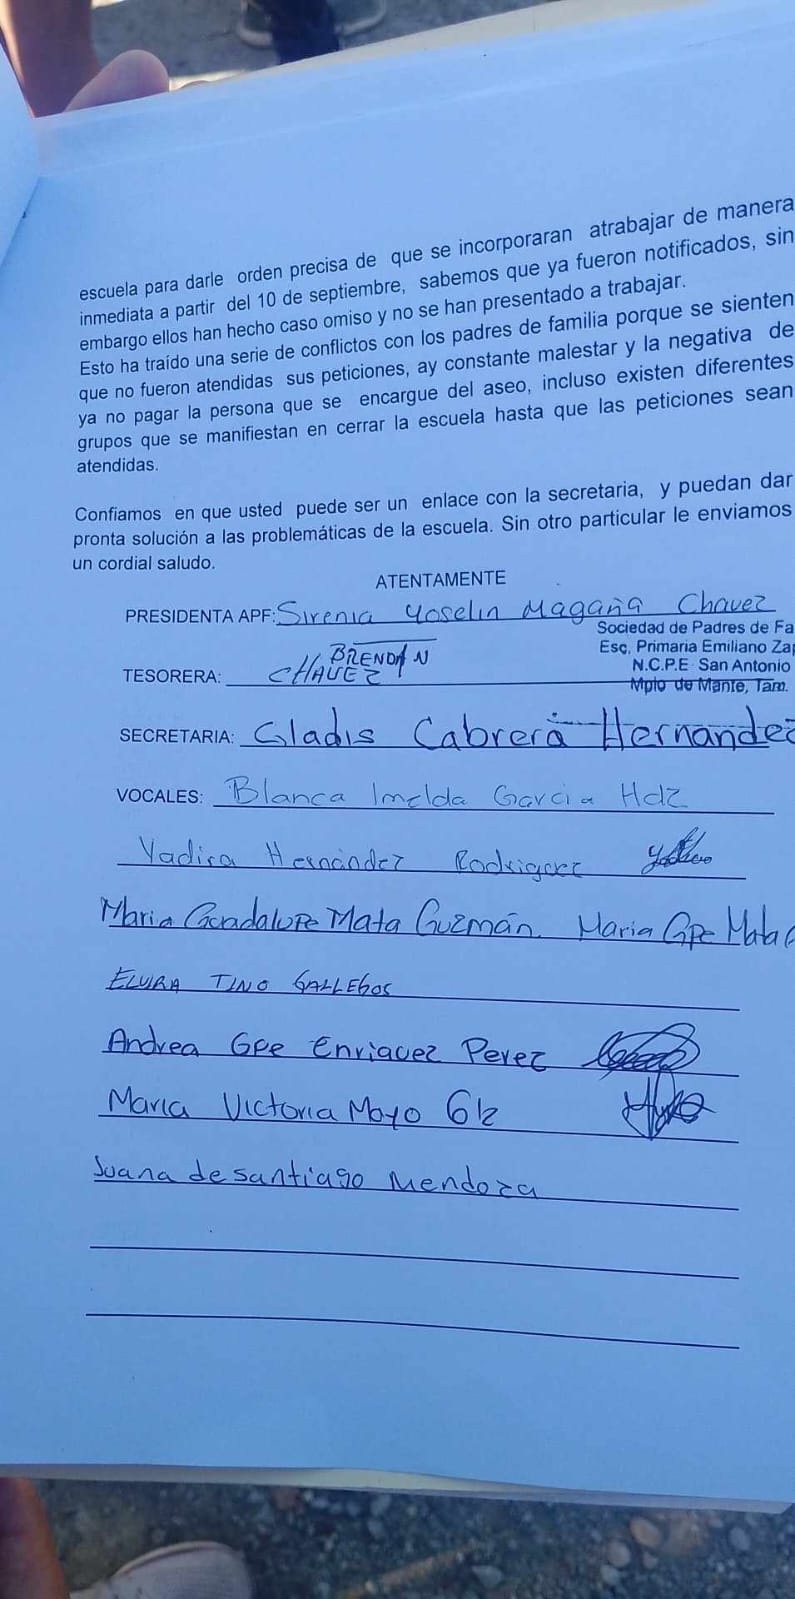 escuela para darle orden precisa de que se incorporaran atrabajar de manera
inmediata a partir del 10 de septiembre, sabemos que ya fueron notificados, sin
embargo ellos han hecho caso omiso y no se han presentado a trabajar.
Esto ha traído una serie de conflictos con los padres de familia porque se sienten
que no fueron atendidas sus peticiones, ay constante malestar y la negativa de
ya no pagar la persona que se encargue del aseo, incluso existen diferentes
grupos que se manifiestan en cerrar la escuela hasta que las peticiones sean
atendidas.
Confiamos en que usted puede ser un enlace con la secretaria, y puedan dar
pronta solución a las problemáticas de la escuela. Sin otro particular le enviamos
un cordial saludo.
ATENTAMENTE
PRESIDENTA APF: Sirenia Yoselin Magaña Chavez
Sociedad de Padres de Fa
Esc. Primaria Emiliano Zap
N.C.P.E San Antonio
Mpio de Mante, Tam.
BRENDA N
TESORERA: CHAVEZ
SECRETARIA: Gladis Cabrera Hernandez
VOCALES: Blanca Imelda Garcia Hdz
Yadira Hernández Rodriguez
Maria Guadalupe Mata Guzmán. Maria Gpe Mata G
ELVIRA TINO GALLEGOS
Andrea Gpe Enriquez Perez
Maria Victoria Moyo Glz
Juana de santiago Mendoza